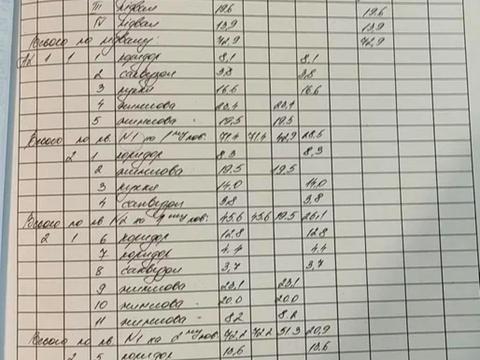 III підвал 19.6 19.6
IV підвал 13,9 13,9
Всього по підвалу: 72,9 72,9
1 1 1 коридор 8,1 8,1
2 санвузол 3.8 3.8
3 кухня 16.6 16.6
4 житлова 23,4 23,4
5 житлова 19,5 19,5
Всього по кв. N1 на 1му пов. 71.4 71,4 42,9 28.5
2 1 коридор 8,3 8,3
2 житлова 19,5 19,5
3 кухня 14,0 14,0
4 санвузол 3.8 3.8
Всього по кв. N2 на 1му пов: 45.6 45.6 19.5 26,1
2 1 6 коридор 12,8 12.8
7 коридор 4,4 4.4
8 санвузол 3,7 3,7
9 житлова 23,1 23,1
10 житлова 20.0 20.0
11 житлова 8.2 8.2
Всього по кв. N1 на 2му пов: 72,2 72,2 51,3 20,9
2 5 коридор 13,6 13.6